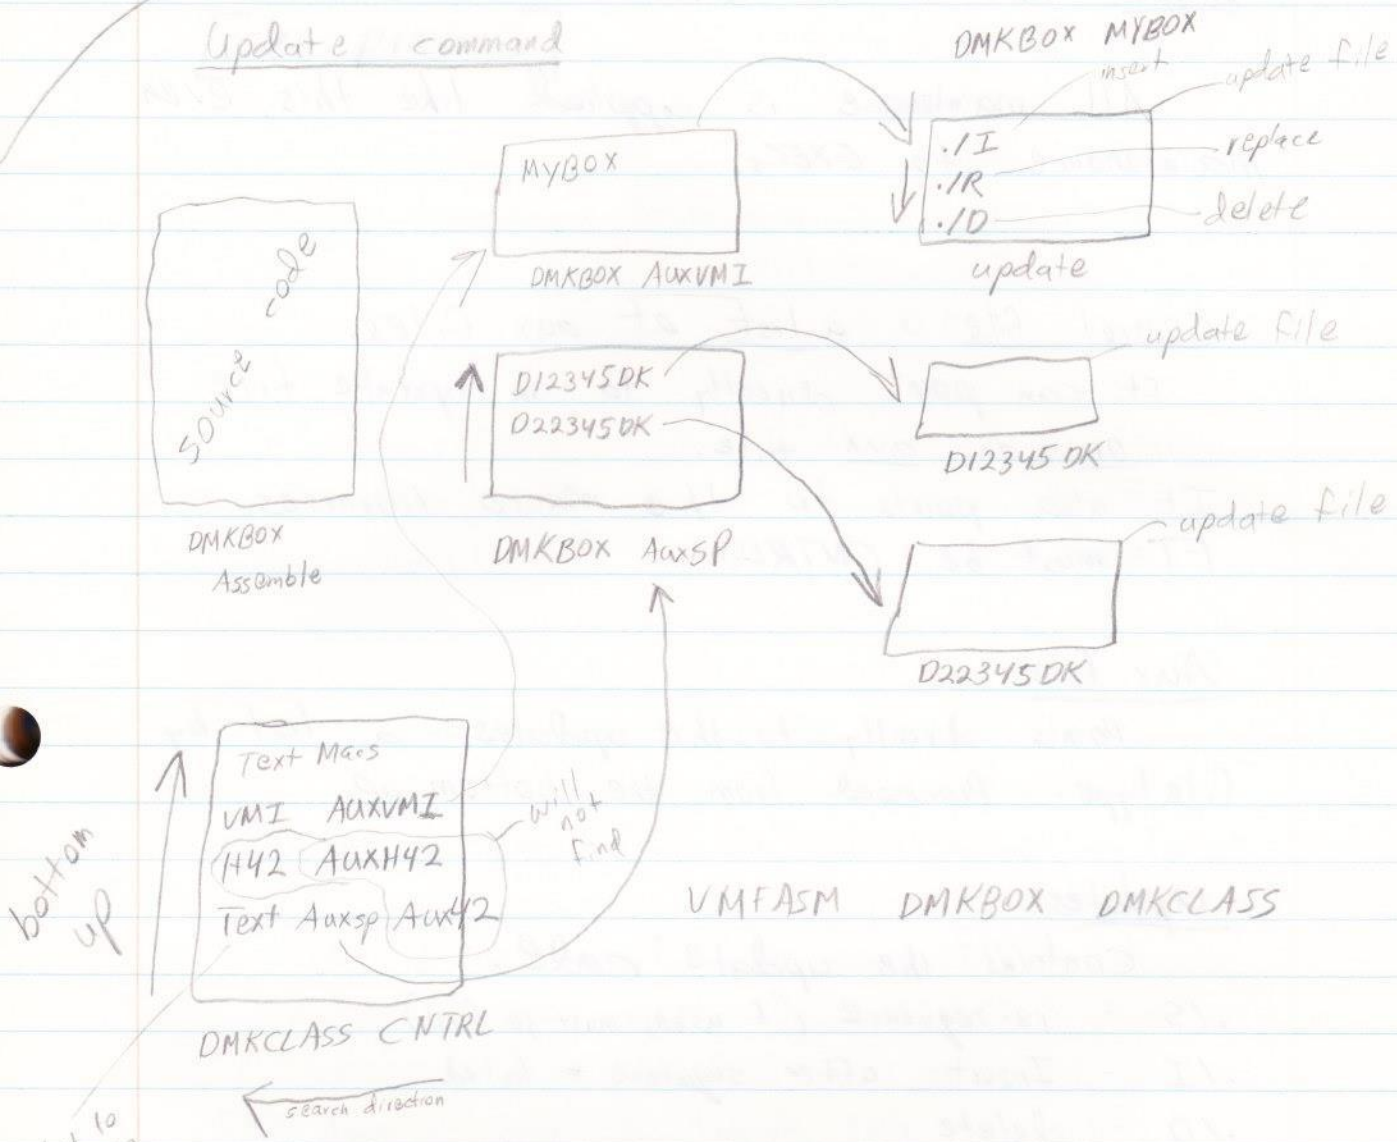 Update command
DMKBOX MYBOX
insert
update file
./I
replace
./R
delete
./D
update
MYBOX
DMKBOX AUXVMI
source code
DMKBOX
Assemble
D12345DK
D22345DK
DMKBOX AUXSP
update file
D12345DK
update file
D22345DK
Text Macs
VMI AUXVMI
H42 AUXH42
Text Auxsp Aux42
will
not
find
bottom
up
DMKCLASS CNTRL
search direction
VMFASM DMKBOX DMKCLASS